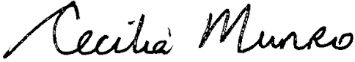 Cecilia Munro